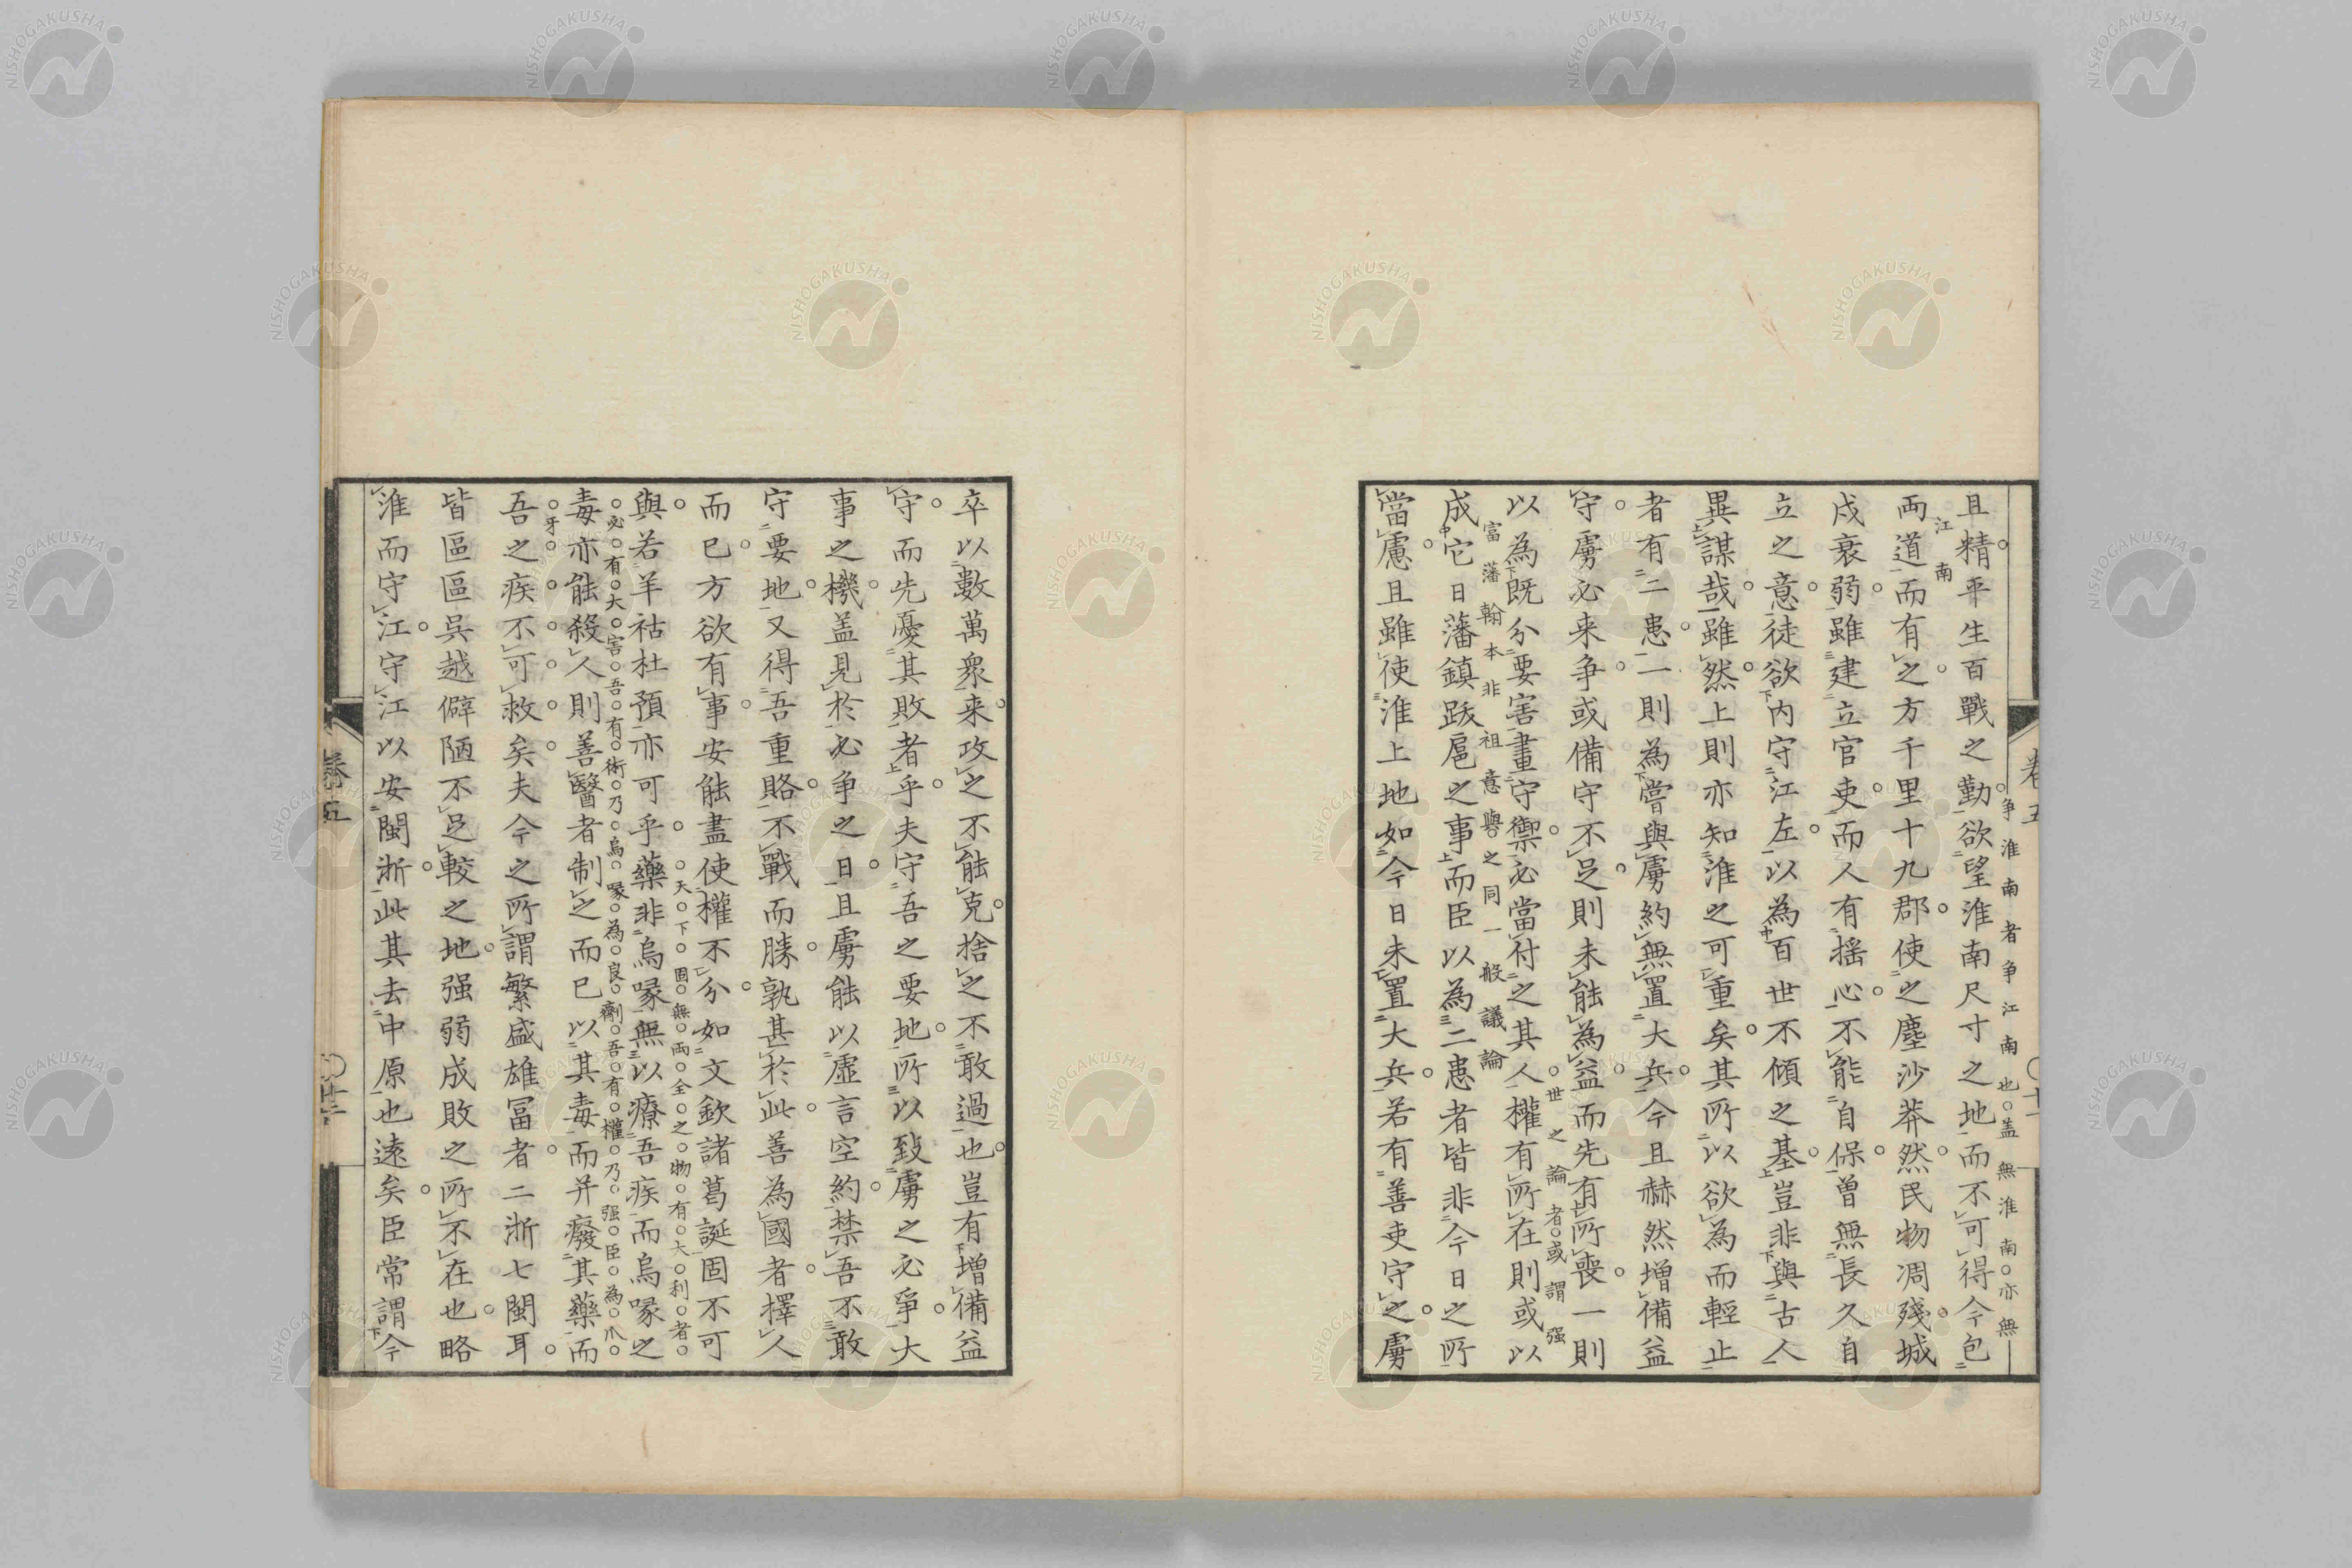 且精平生百戰之勤欲望淮南尺寸之地而不可得今包
爭淮南者爭江南也蓋無淮南亦無
江南
両道而有之方千里十九郡使之塵沙莽然民物凋殘城
戍衰弱雖建立官吏而人有揺心不能自保曽無長久自
立之意徒欲内守江左以為百世不傾之基豈非與古人
異謀哉雖然上則亦知淮之可重矣其所以欲為而輕止
者有二患一則為嘗與虜約無置大兵今且赫然増備益
守虜必来争或備守不足則未能為益而先有所喪一則
世之論者或謂强
以為既分要害畫守禦必當付之其人權有所在則或以
富藩翰本非祖意與之同一般議論
成它日藩鎮跋扈之事而臣以為二患者皆非今日之所
當慮且雖使淮上地如今日未置大兵若有善吏守之虜
卷五
卒以數萬衆来攻之不能克捨之不敢過也豈有増備益
守而先憂其敗者乎夫守吾之要地所以致虜之必爭大
事之機蓋見於必争之日且虜能以虚言空約禁吾不敢
守要地又得吾重賂不戰而勝孰甚於此善為國者擇人
而已方欲有事安能盡使權不分如文欽諸葛誕固不可
天下固無両全之物有大利者
與若羊祜杜預亦可乎藥非烏喙無以療吾疾而烏喙之
必有大害吾有術乃烏喙為良劑吾有權乃强臣為爪
毒亦能殺人則善醫者制之而已以其毒而并癈其藥而
牙
吾之疾不可救矣夫今之所謂繁盛雄冨者二浙七閩耳
皆區區呉越僻陋不足較之地强弱成敗之所不在也略
淮而守江守江以安閩浙此其去中原也遠矣臣常謂今
卷五